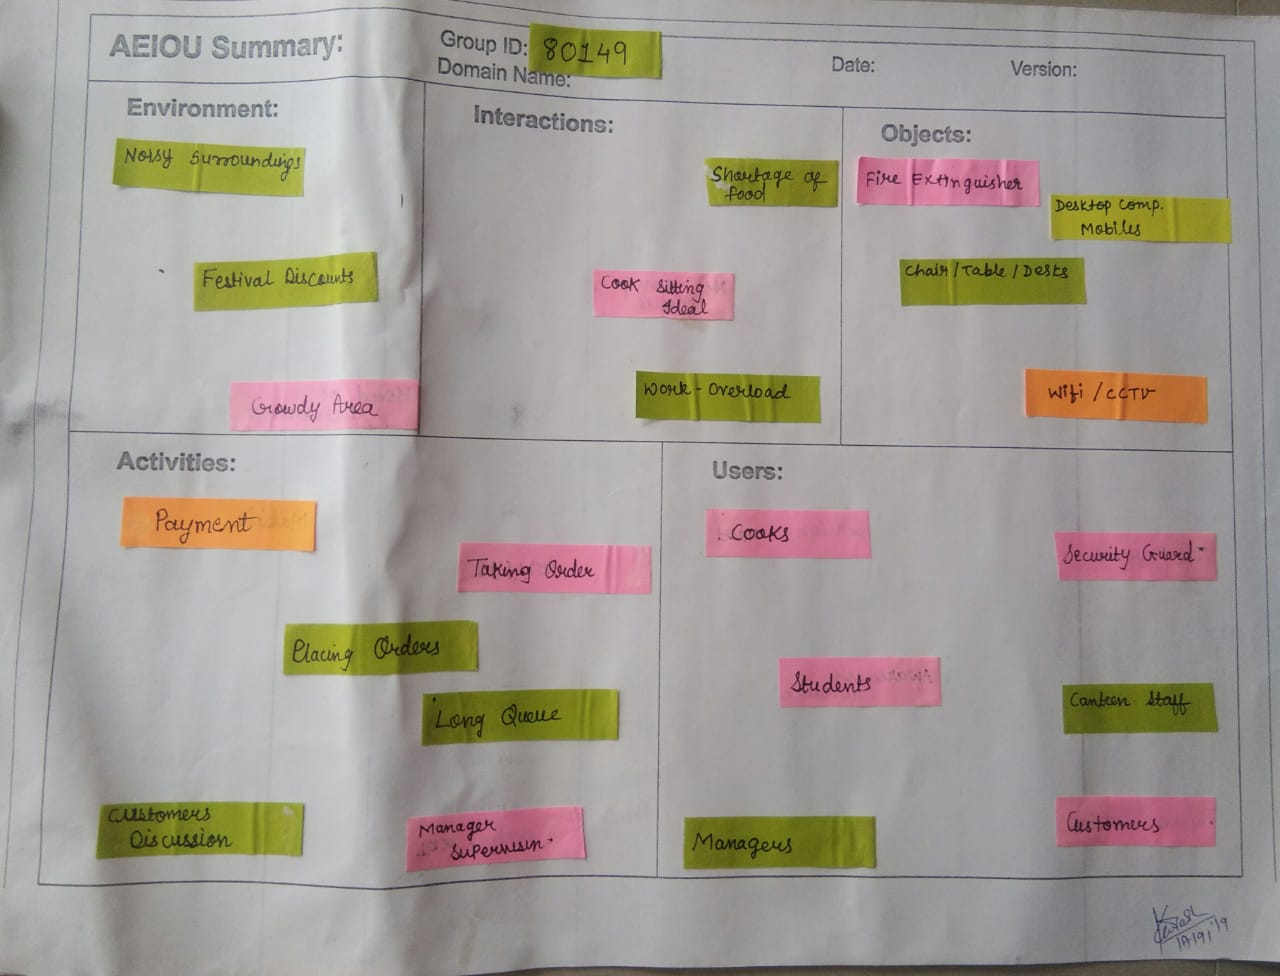 AEIOU Summary:
Group ID: 80149
Domain Name:
Date:
Version:
Environment:
Noisy Surroundings
Festival Discounts
Crowdy Area
Interactions:
Shortage of
food
Cook Sitting
Ideal
Work-Overload
Objects:
Fire Extinguisher
Desktop Comp.
Mobiles
Chair/Table/Desks
Wifi/CCTV
Activities:
Payment
Taking Order
Placing Orders
Long Queue
Customers
Discussion
Manager
Supervisin.
Users:
Cooks
Security Guard
Students
Canteen Staff
Managers
Customers